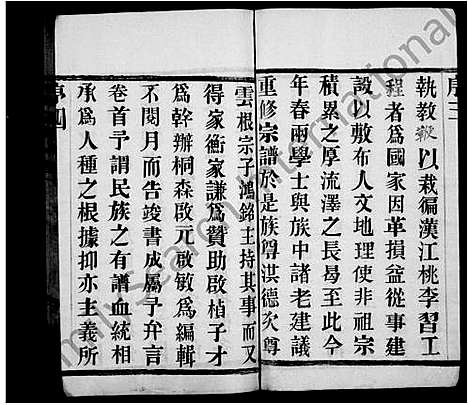 序三
執教鞭以栽徧漢江桃李習工
程者爲國家因革損益從事建
設以敷布人文地理使非祖宗
積累之厚流澤之長曷至此今
年春兩學士與族中諸老建議
重修宗譜於是族尊淇德次尊
雲根宗子鴻銘主持其事而又
得家衡家謙爲贊助啟楨子才
爲幹辦桐森啟元啟敏爲編輯
不閱月而告竣書成屬予弁言
卷首予謂民族之有譜血統相
承爲人種之根據抑亦主義所
序四
FamilySearch International